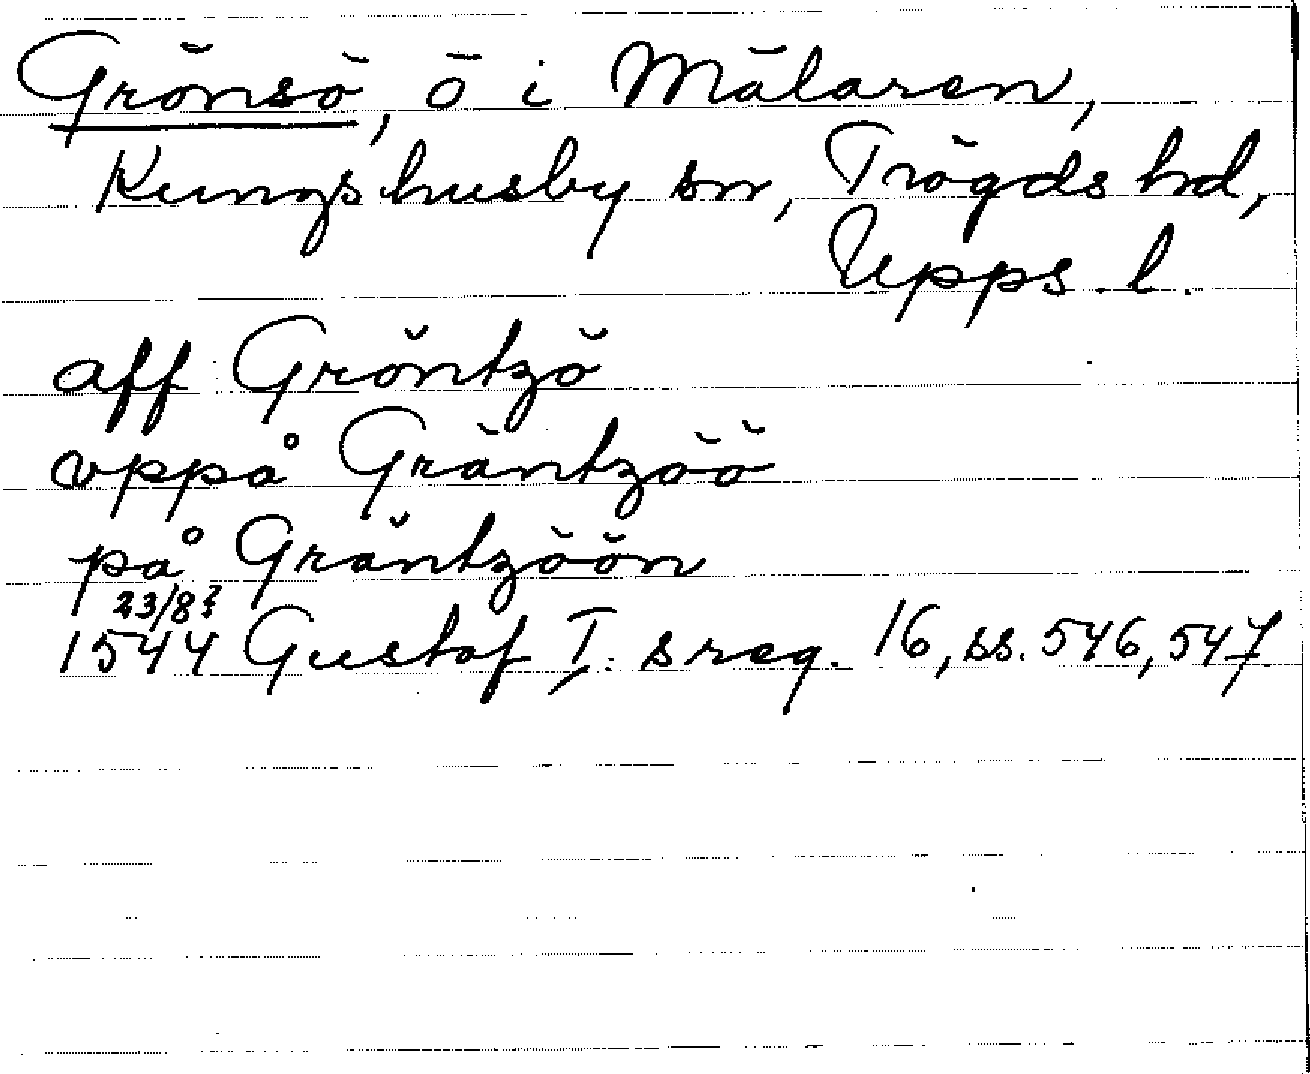 Grönsö, ö i Mälaren,
Kungshusby sn, Trögds hd,
Upps. l.
aff Gröntzö
vppå Gräntzöö
på Gräntzöön
23/8?
1544 Gustaf I:s reg. 16, ss. 546, 547